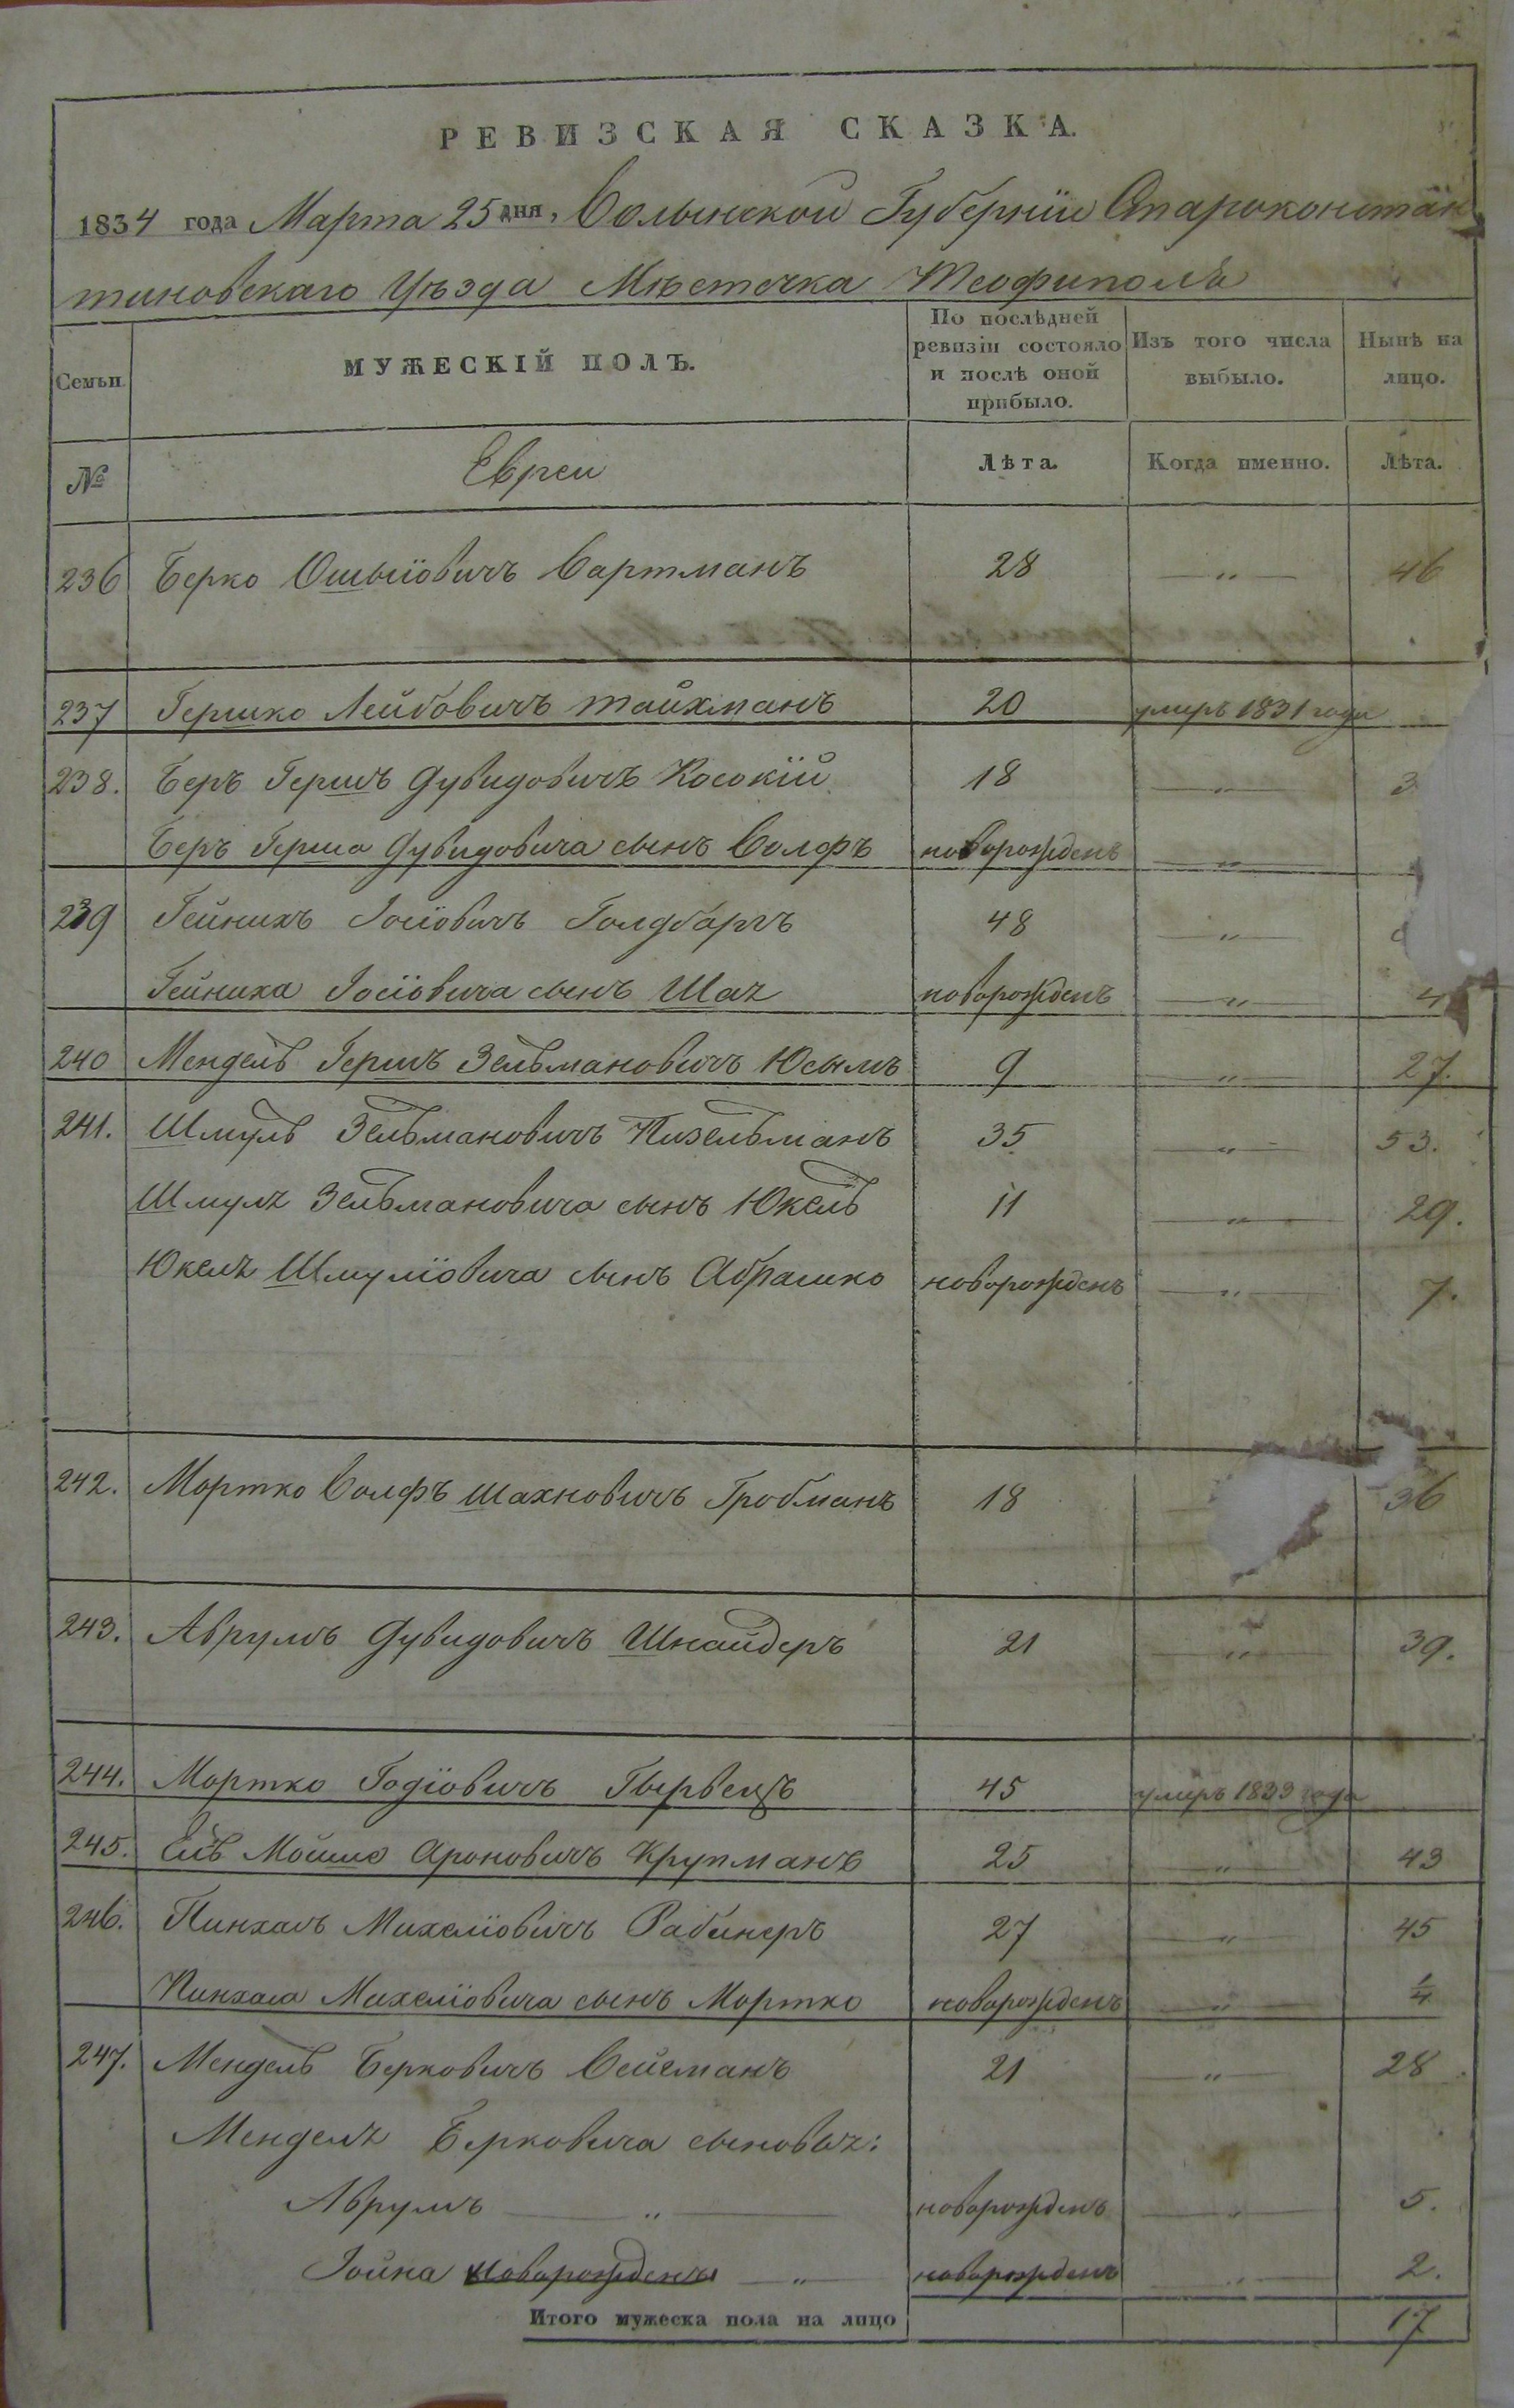 РЕВИЗСКАЯ СКАЗКА.
1834 года Марта 25 дня, Волынской Губерніи Староконстан
тиновскаго Уѣзда Мѣстечка Теофиполя
Семьи МУЖЕСКІЙ ПОЛЪ. По послѣдней ревизіи состояло и послѣ оной прибыло. Изъ того числа выбыло. Нынѣ на лицо.
№ Евреи Лѣта. Когда именно. Лѣта.
236 Берко Ошыіовичъ Вартманъ 28 — „ — 46
237 Гершко Лейбовичъ Тайхманъ 20 умеръ 1831 года
238. Беръ Гершъ Дувидовичъ Косокій 18 — „ — 3
Беръ Герша Дувидовича сынъ Волфъ новорожденъ — „ —
239 Гейнихъ Іосіовичъ Голдбаргъ 48 — „ —
Гейниха Іосіовича сынъ Шая новорожденъ — „ — 4
240 Мендель Гершъ Зельмановичъ Юсымъ 9 — „ — 27.
241. Шмуль Зельмановичъ Кизельманъ 35 — „ — 53.
Шмуля Зельмановича сынъ Юкель 11 — „ — 29.
Юкеля Шмуліовича сынъ Абрашко новорожденъ — „ — 7.
242. Мортко Волфъ Шахновичъ Гробманъ 18 36
243. Аврумъ Дувидовичъ Шнайдеръ 21 — „ — 39.
244. Мортко Годіовичъ 45 умеръ 1833 года
245. Ель Мошко Ароновичъ Крупманъ 25 — „ — 43
246. Пинхасъ Михеліовичъ Рабинеръ 27 — „ — 45
Пинхаса Михеліовича сынъ Мортко новорожденъ — „ — ¼
247. Мендель Берковичъ Вейсманъ 21 — „ — 28
Менделя Берковича сыновья:
Аврумъ — „ — новорожденъ — „ — 5.
Іойна новорожденъ — „ — новорожденъ — „ — 2.
Итого мужеска пола на лицо 17